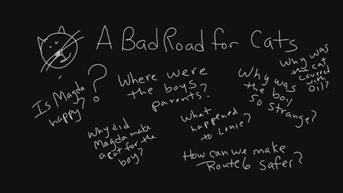 A Bad Road for Cats
Is Magda
happy?
Where were
the boys
parents?
Why was
the boy
so strange?
Why was
the cat
covered
with
oil?
Why did
Magda make
a cat for the
boy?
What
happened
to Lonie?
How can we make
Route 6 safer?